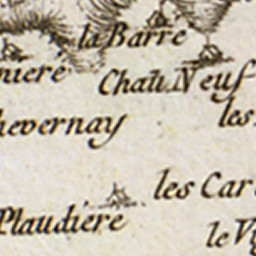 la Barre
niere
Chau Neuf
hevernay
les
les Car
Plaudiere
le V